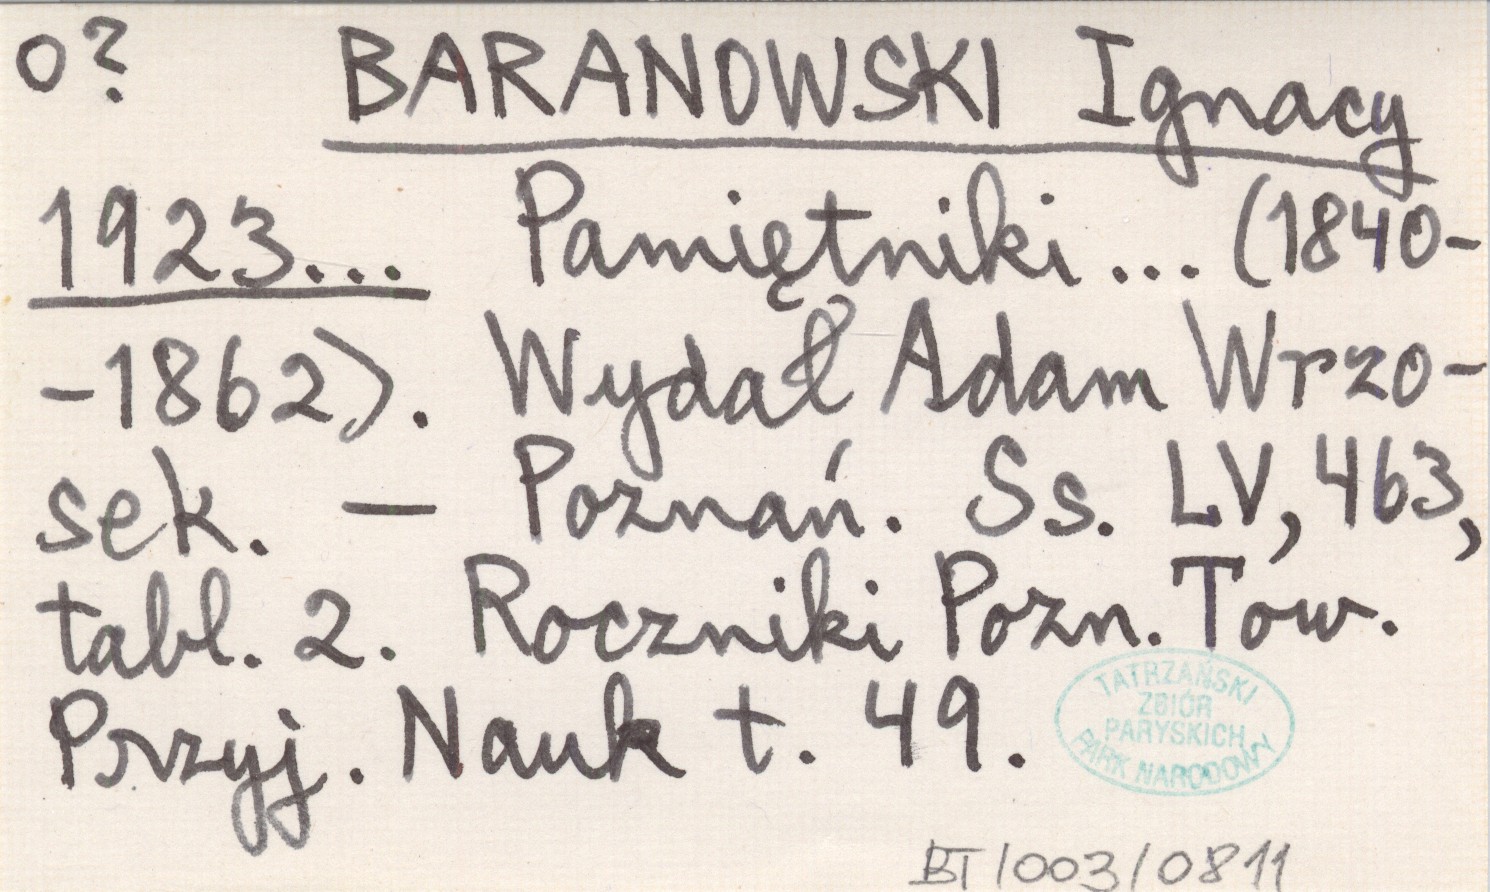 o? BARANOWSKI Ignacy
1923... Pamiętniki ... (1840-
-1862). Wydał Adam Wrzo-
sek. — Poznań. Ss. LV, 463,
tabl. 2. Roczniki Pozn. Tow.
Przyj. Nauk t. 49.
TATRZAŃSKI
ZBIÓR
PARYSKICH
PARK NARODOWY
BT/003/0811